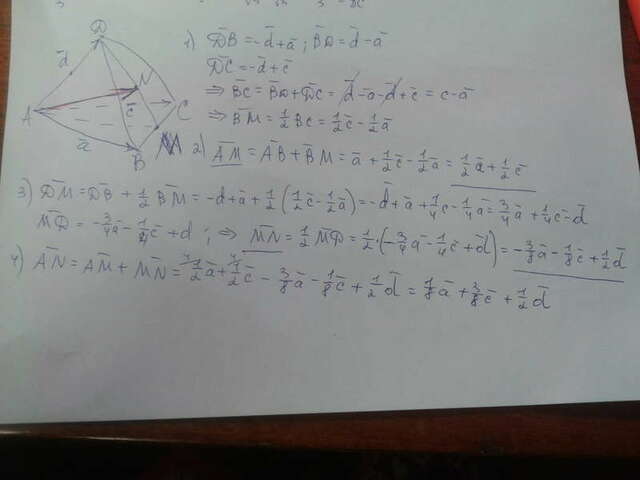 D
d̄
N
A
c̄
C
ā
B
M
1) D̄B = -d̄ + ā ; B̄D = d̄ - ā
D̄C = -d̄ + c̄
⇒ B̄C = B̄D + D̄C = d̄ - ā - d̄ + c̄ = c - ā
⇒ B̄M = 1/2 B̄C = 1/2 c̄ - 1/2 ā
2) ĀM = ĀB + B̄M = ā + 1/2 c̄ - 1/2 ā = 1/2 ā + 1/2 c̄
3) D̄M = D̄B + 1/2 B̄M = -d + ā + 1/2 (1/2 c̄ - 1/2 ā) = -d̄ + ā + 1/4 c̄ - 1/4 ā = 3/4 ā + 1/4 c̄ - d̄
M̄D = -3/4 ā - 1/4 c̄ + d ; ⇒ M̄N = 1/2 M̄D = 1/2 · (-3/4 ā - 1/4 c̄ + d̄) = -3/8 ā - 1/8 c̄ + 1/2 d̄
4) ĀN = ĀM + M̄N = 1/2 ā + 1/2 c̄ - 3/8 ā - 1/8 c̄ + 1/2 d̄ = 1/8 ā + 3/8 c̄ + 1/2 d̄